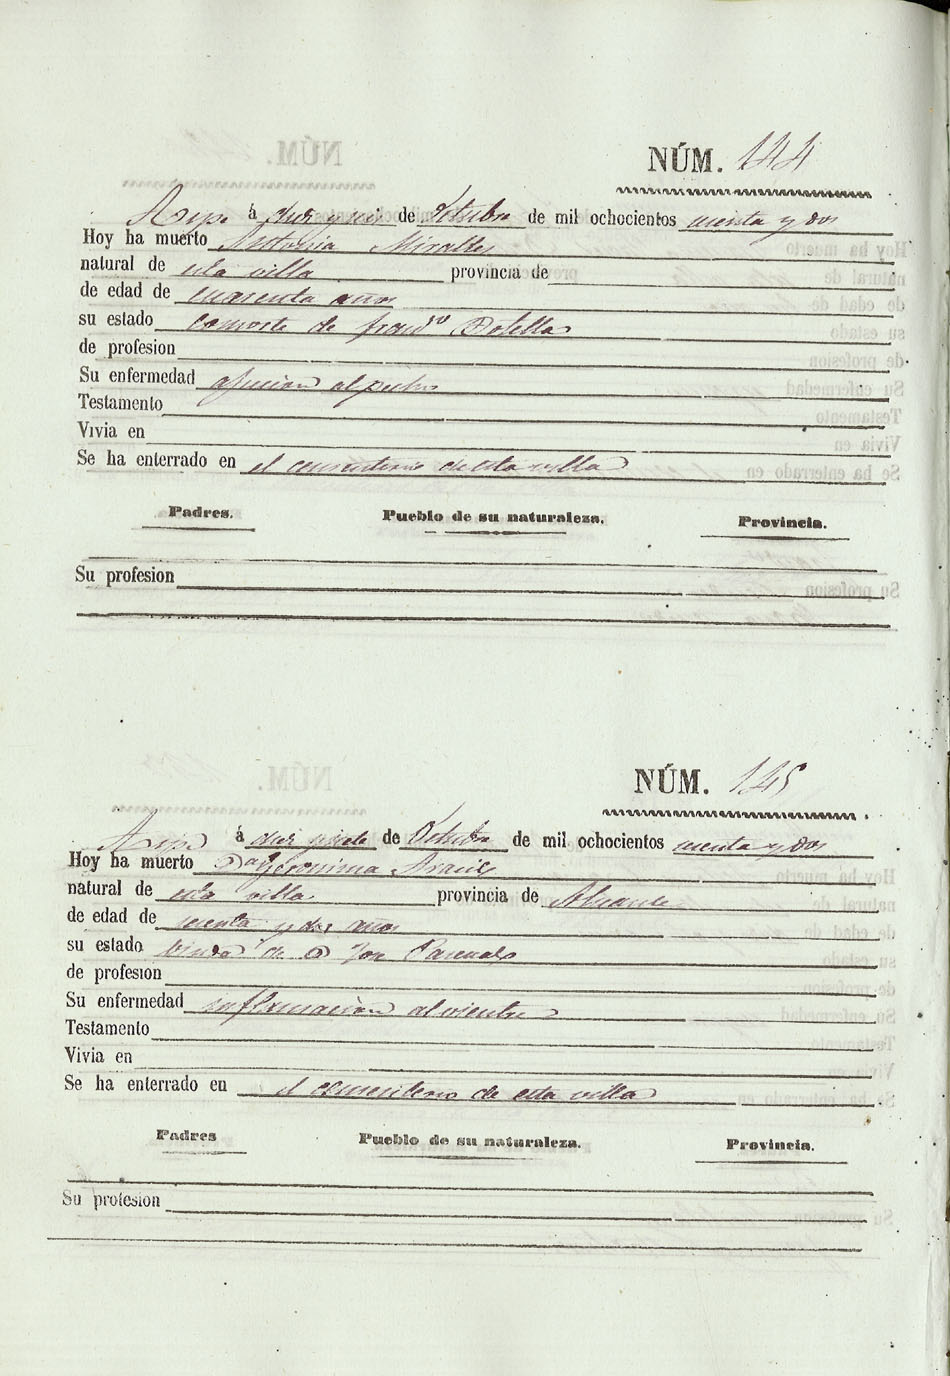 NÚM. 144
Aspe á diez y seis de Octubre de mil ochocientos sesenta y dos
Hoy ha muerto Antonia Miralles
natural de esta villa provincia de
de edad de cuarenta años
su estado consorte de Fran.co Botella
de profesion
Su enfermedad afeccion al pecho
Testamento
Vivia en
Se ha enterrado en el cementerio de esta villa
Padres. Pueblo de su naturaleza. Provincia.
Su profesion
NÚM. 145
Aspe á diez y siete de Octubre de mil ochocientos sesenta y dos
Hoy ha muerto D.a Geronima
natural de esta villa provincia de Alicante
de edad de sesenta y dos años
su estado viuda de D. José Pascual
de profesion
Su enfermedad inflamacion al vientre
Testamento
Vivia en
Se ha enterrado en el cementerio de esta villa
Padres Pueblo de su naturaleza. Provincia.
Su profesion